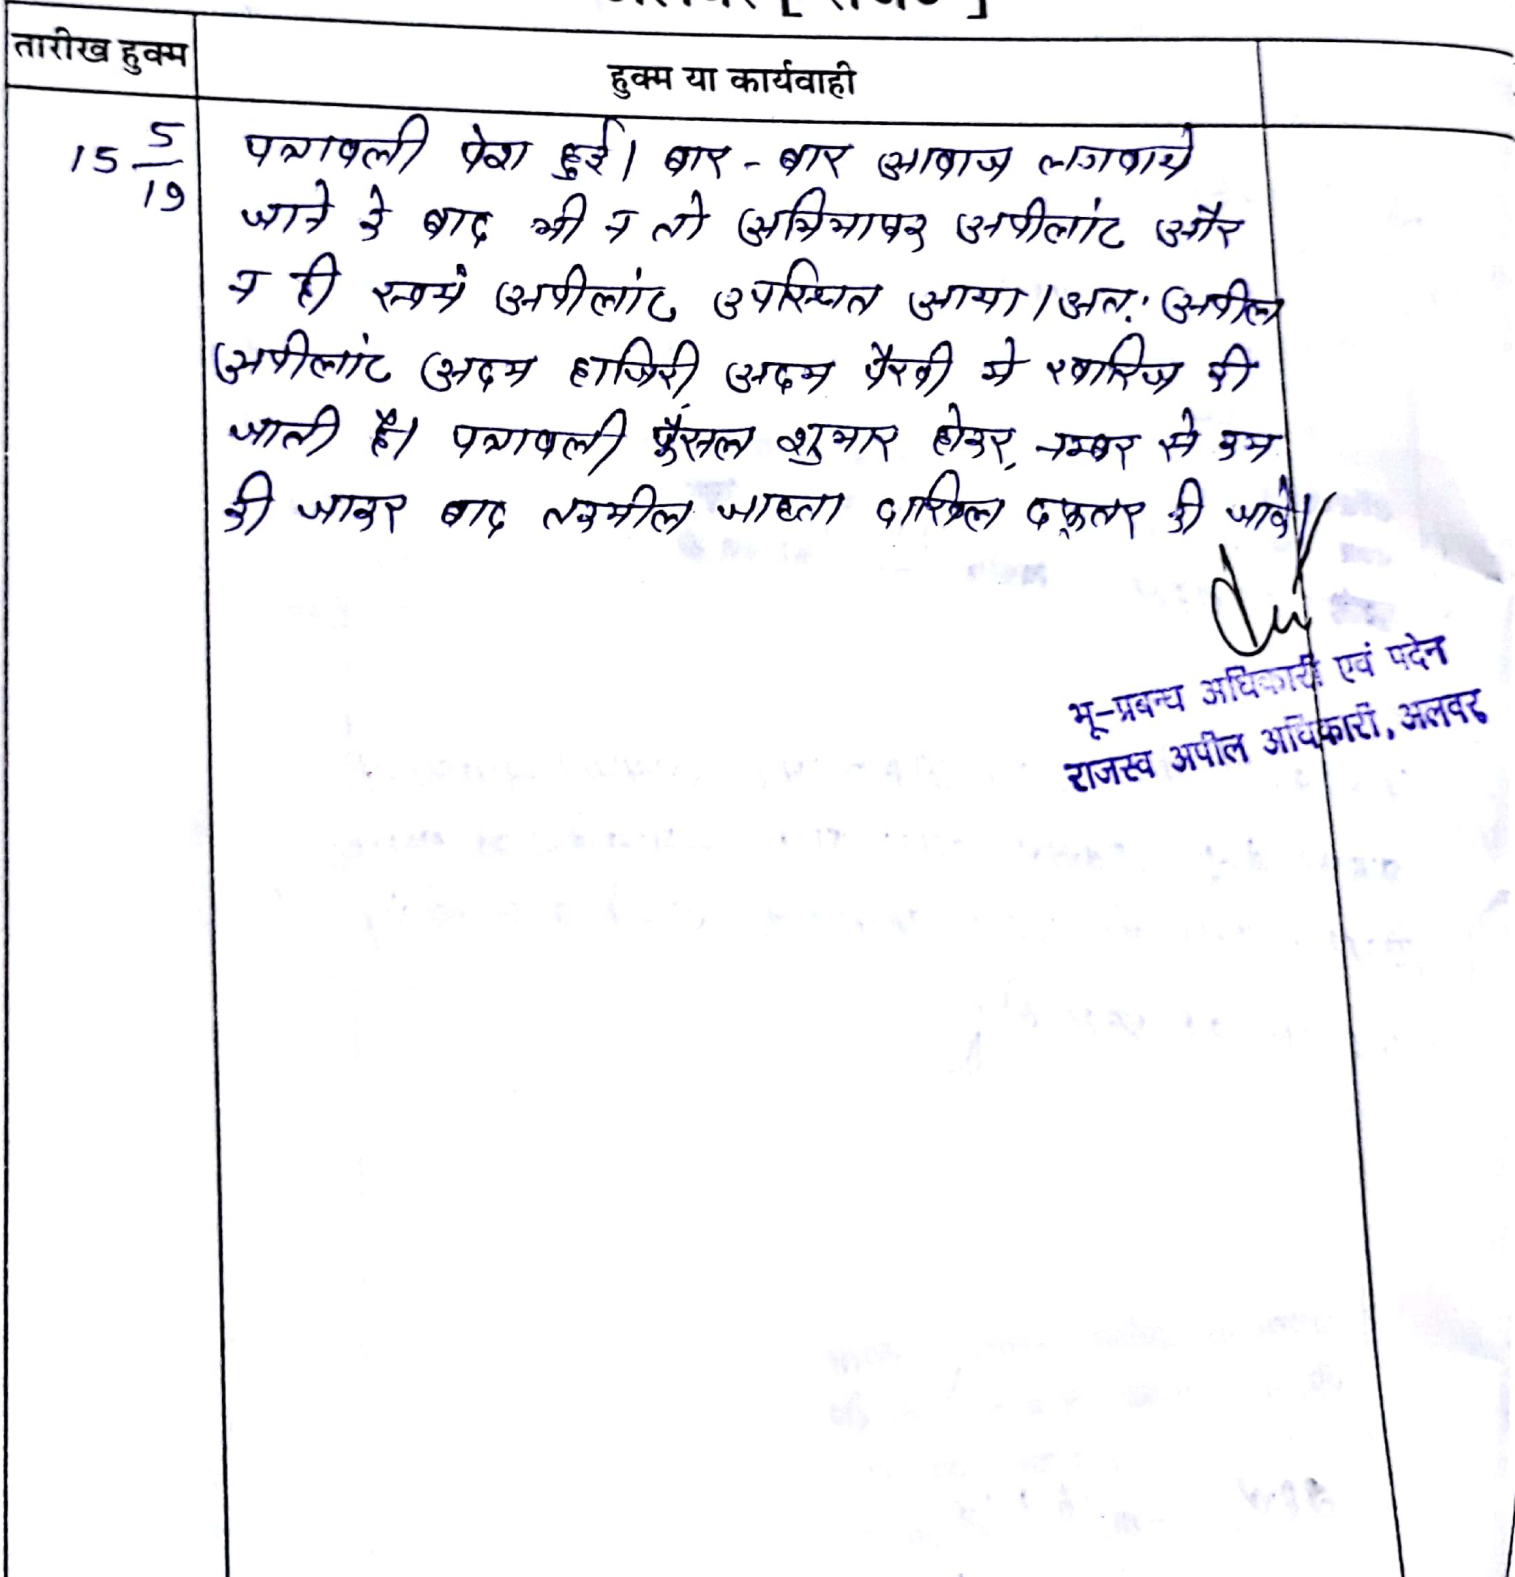 तारीख हुक्म
हुक्म या कार्यवाही
15 5/19
पत्रावली पेश हुई। बार-बार आवाज लगवाये
जाने के बाद भी न तो अभिभाषक अपीलांट और
न ही स्वयं अपीलांट उपस्थित आया। अत: अपील
अपीलांट अदम हाजिरी अदम पैरवी मे खारिज की
जाती है। पत्रावली फैसल शुमार होकर, नम्बर से कम
की जाकर बाद तकमील जाब्ता दाखिल दफ्तर की जावे।
भू-प्रबन्ध अधिकारी एवं पदेन
राजस्व अपील अधिकारी, अलवर